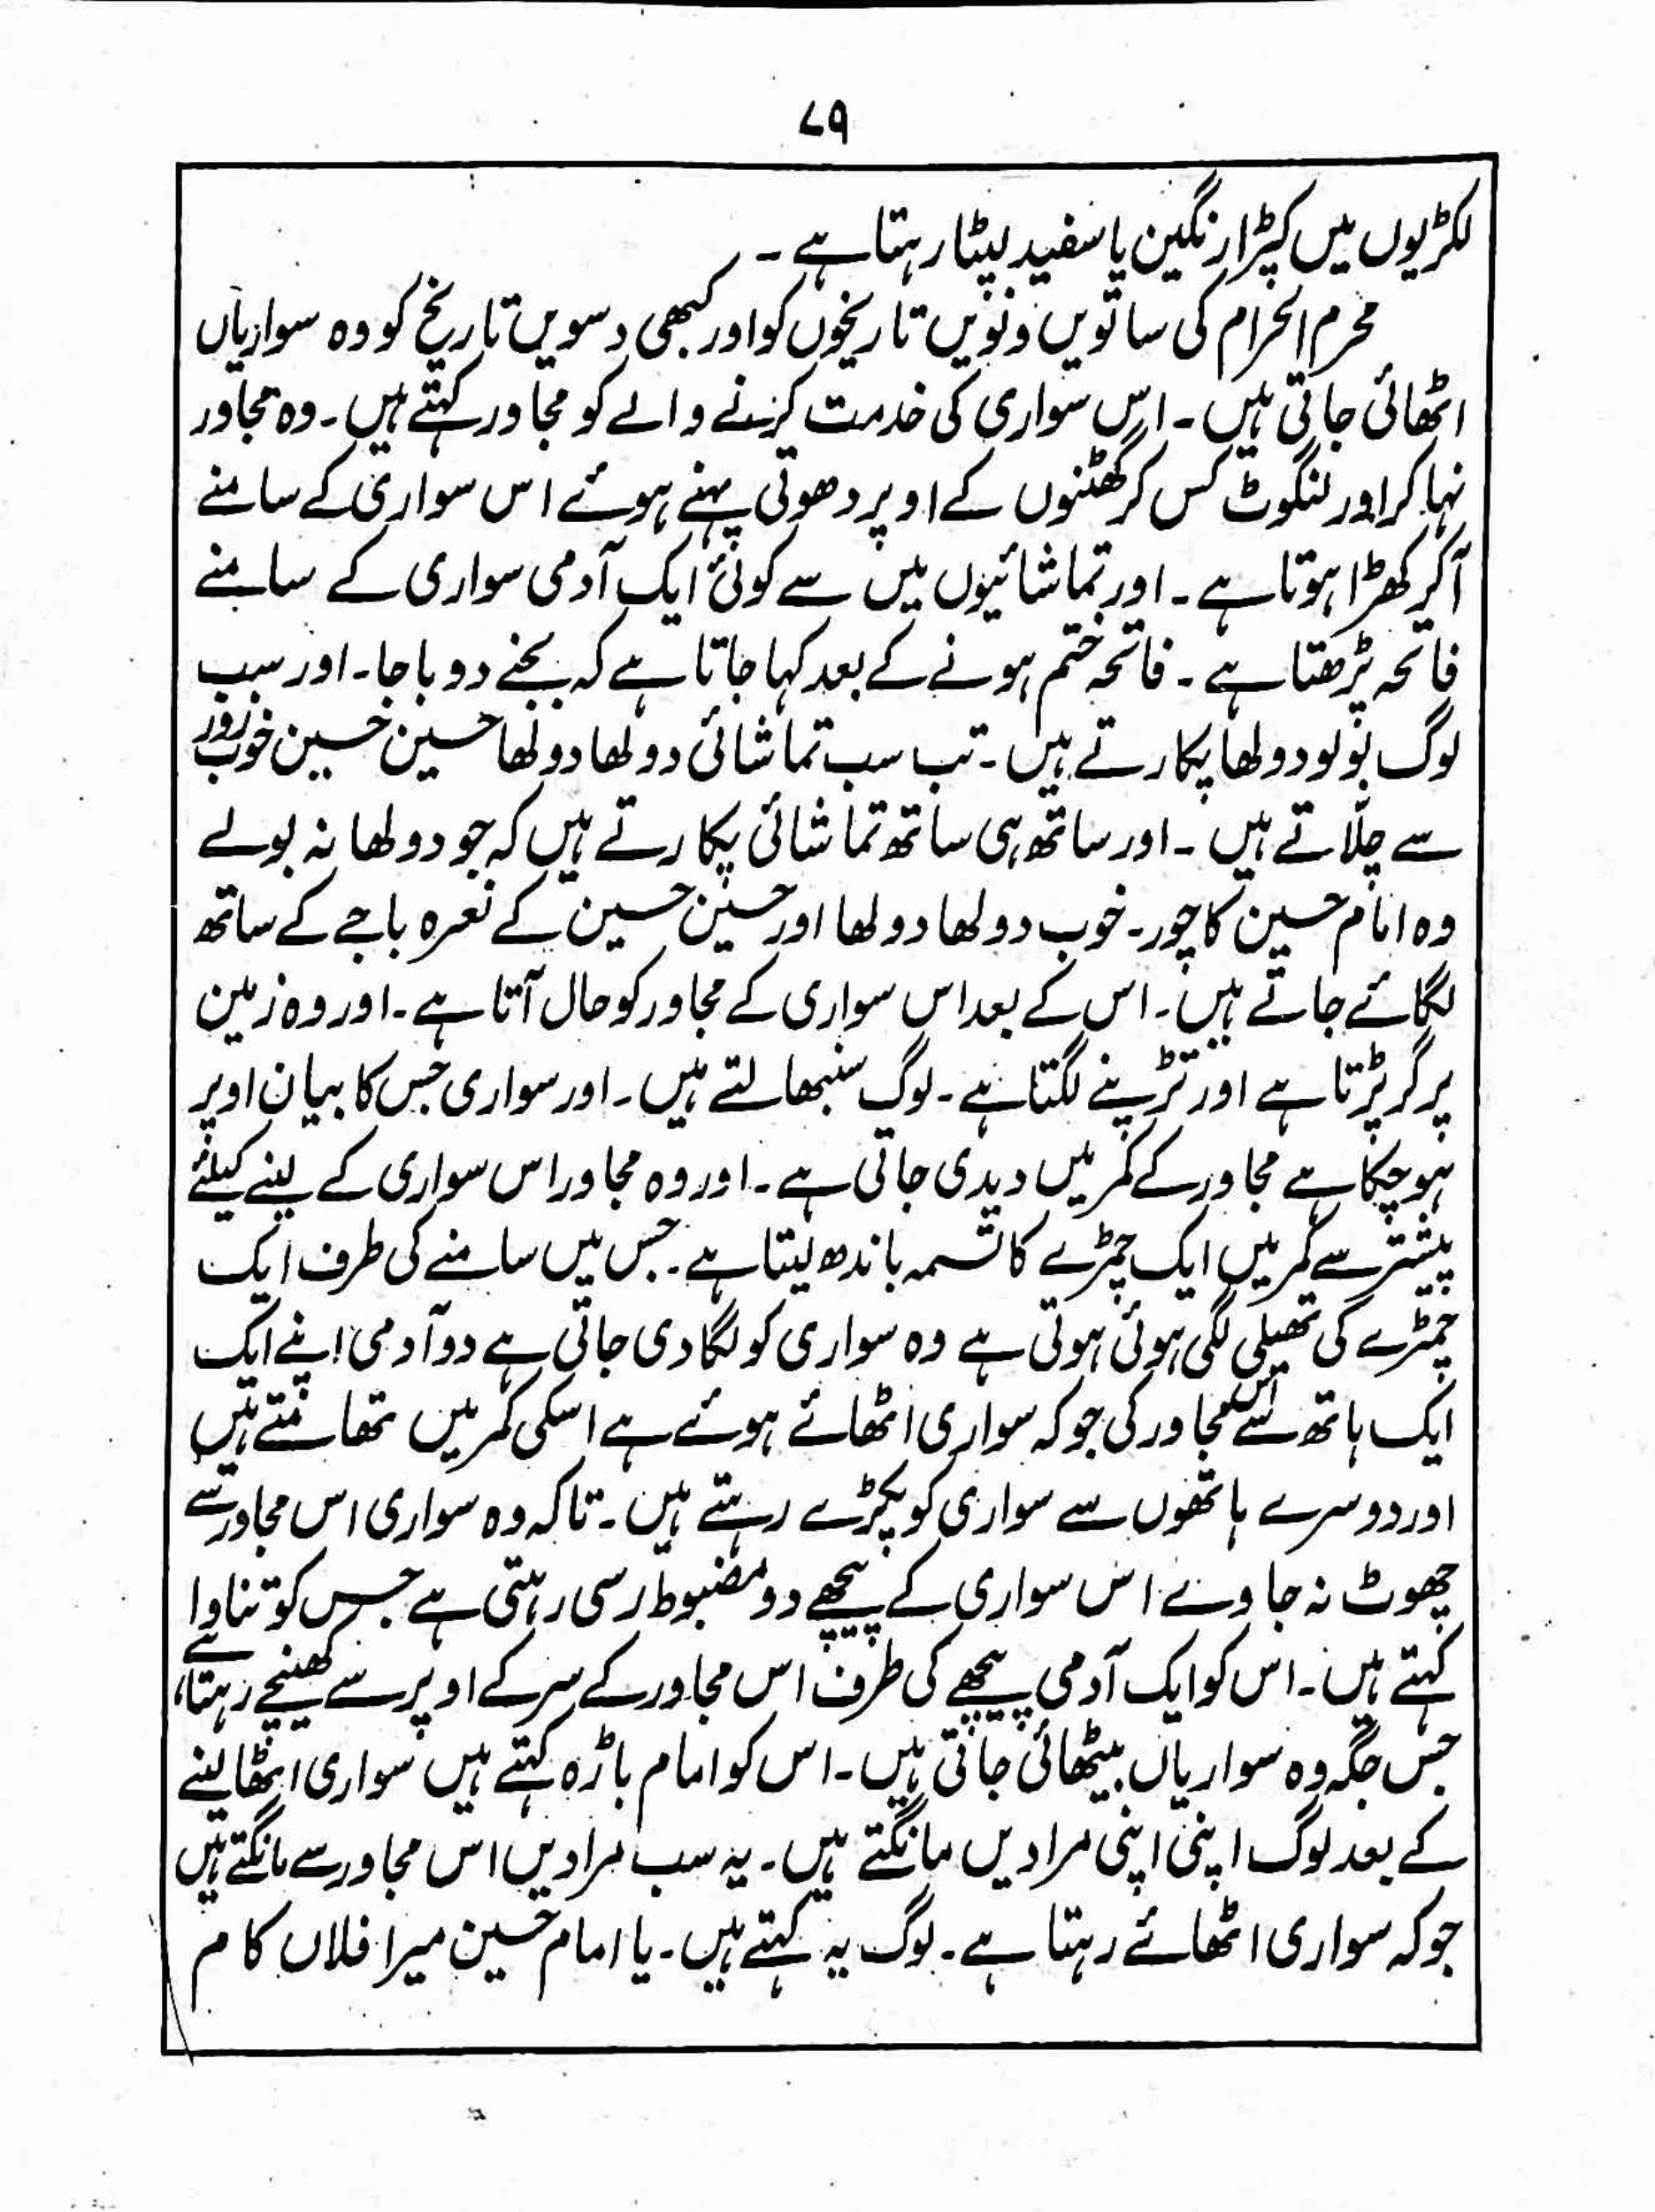 ۷۹
لکڑیوں میں کپڑا رنگین یا سفید لپٹا رہتا ہے ۔
محرم الحرام کی ساتویں و نویں تاریخوں کو اور کبھی دسویں تاریخ کو وہ سواریاں
اٹھائی جاتی ہیں ۔ اس سواری کی خدمت کرنے والے کو مجاور کہتے ہیں ۔ وہ مجاور
نہا کر اور لنگوٹ کس کر گھٹنوں کے اوپر دھوتی پہنے ہوئے اس سواری کے سامنے
آکر کھڑا ہوتا ہے ۔ اور تماشائیوں میں سے کوئی ایک آدمی سواری کے سامنے
فاتحہ پڑھتا ہے ۔ فاتحہ ختم ہونے کے بعد کہا جاتا ہے کہ بجنے دو باجا ۔ اور سب
لوگ بولو دولھا پکارتے ہیں ۔ تب سب تماشائی دولھا دولھا حسین حسین خوب زور
سے چلّاتے ہیں ۔ اور ساتھ ہی ساتھ تماشائی پکارتے ہیں کہ جو دولھا نہ بولے
وہ امام حسین کا چور ۔ خوب دولھا دولھا اور حسین حسین کے نعرہ باجے کے ساتھ
لگائے جاتے ہیں ۔ اس کے بعد اس سواری کے مجاور کو حال آتا ہے ۔ اور وہ زمین
پر گر پڑتا ہے اور تڑپنے لگتا ہے ۔ لوگ سنبھالتے ہیں ۔ اور سواری جس کا بیان اوپر
ہوچکا ہے مجاور کے کمر میں دیدی جاتی ہے ۔ اور وہ مجاور اس سواری کے لینے کیلئے
پیشتر سے کمر میں ایک چمڑے کا تسمہ باندھ لیتا ہے ۔ جس میں سامنے کی طرف ایک
چمڑے کی تھیلی لگی ہوئی ہوتی ہے وہ سواری کو لگا دی جاتی ہے دو آدمی اپنے ایک
ایک ہاتھ سے اس مجاور کی جو کہ سواری اٹھائے ہوئے ہے اسکی کمر میں تھامتے ہیں
اور دوسرے ہاتھوں سے سواری کو پکڑے رہتے ہیں ۔ تاکہ وہ سواری اس مجاور سے
چھوٹ نہ جاوے اس سواری کے پیچھے دو مضبوط رسی رہتی ہے جس کو تناوا
کہتے ہیں ۔ اس کو ایک آدمی پیچھے کی طرف اس مجاور کے سر کے اوپر سے کھینچے رہتا ہے
جس جگہ وہ سواریاں بیٹھائی جاتی ہیں ۔ اس کو امام باڑہ کہتے ہیں سواری اٹھا لینے
کے بعد لوگ اپنی اپنی مرادیں مانگتے ہیں ۔ یہ سب مرادیں اس مجاور سے مانگتے ہیں
جو کہ سواری اٹھائے رہتا ہے ۔ لوگ یہ کہتے ہیں ۔ یا امام حسین میرا فلاں کام